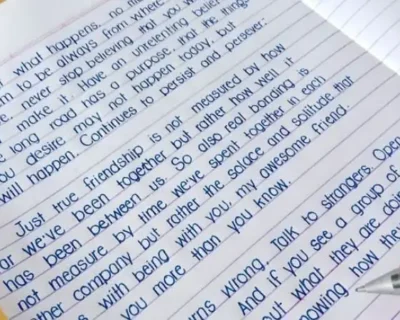 what happens, no
to be always from where
never stop believing that you
make it. Have an unrelenting belief
long road has a purpose, that the things
you desire may not happen today, but
will happen. Continues to persist and persever.
Just true friendship is not measured by how
we've been together but rather how well it
has been between us. So also real bonding is
not measure by time we've spent together in each
other company but rather the solace and solitude that
with being with you, my awesome friend.
you more than you know.
wrong. Talk to strangers. Open
And if you see a group of
out what they are
how